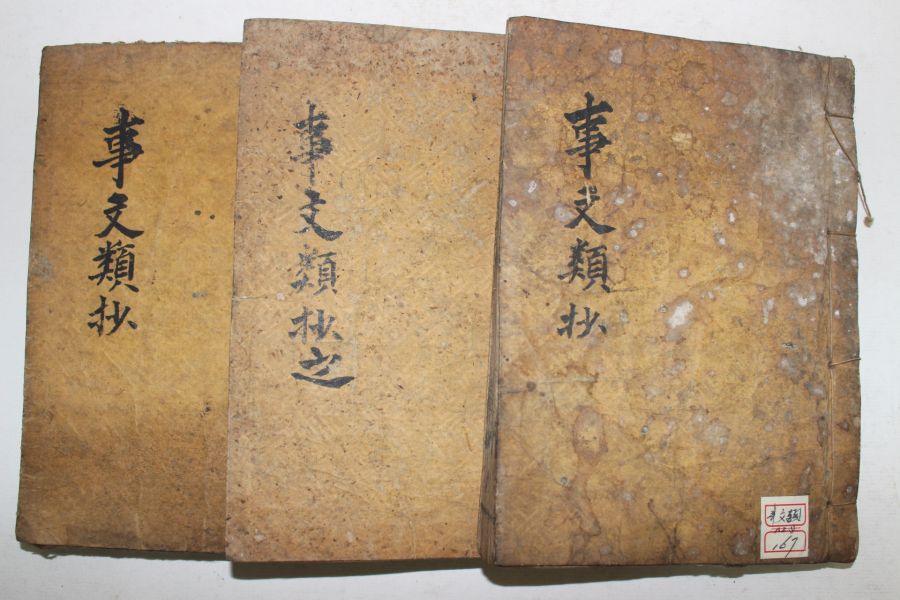 事文類抄
事文類抄之
事文類抄
事文類
167